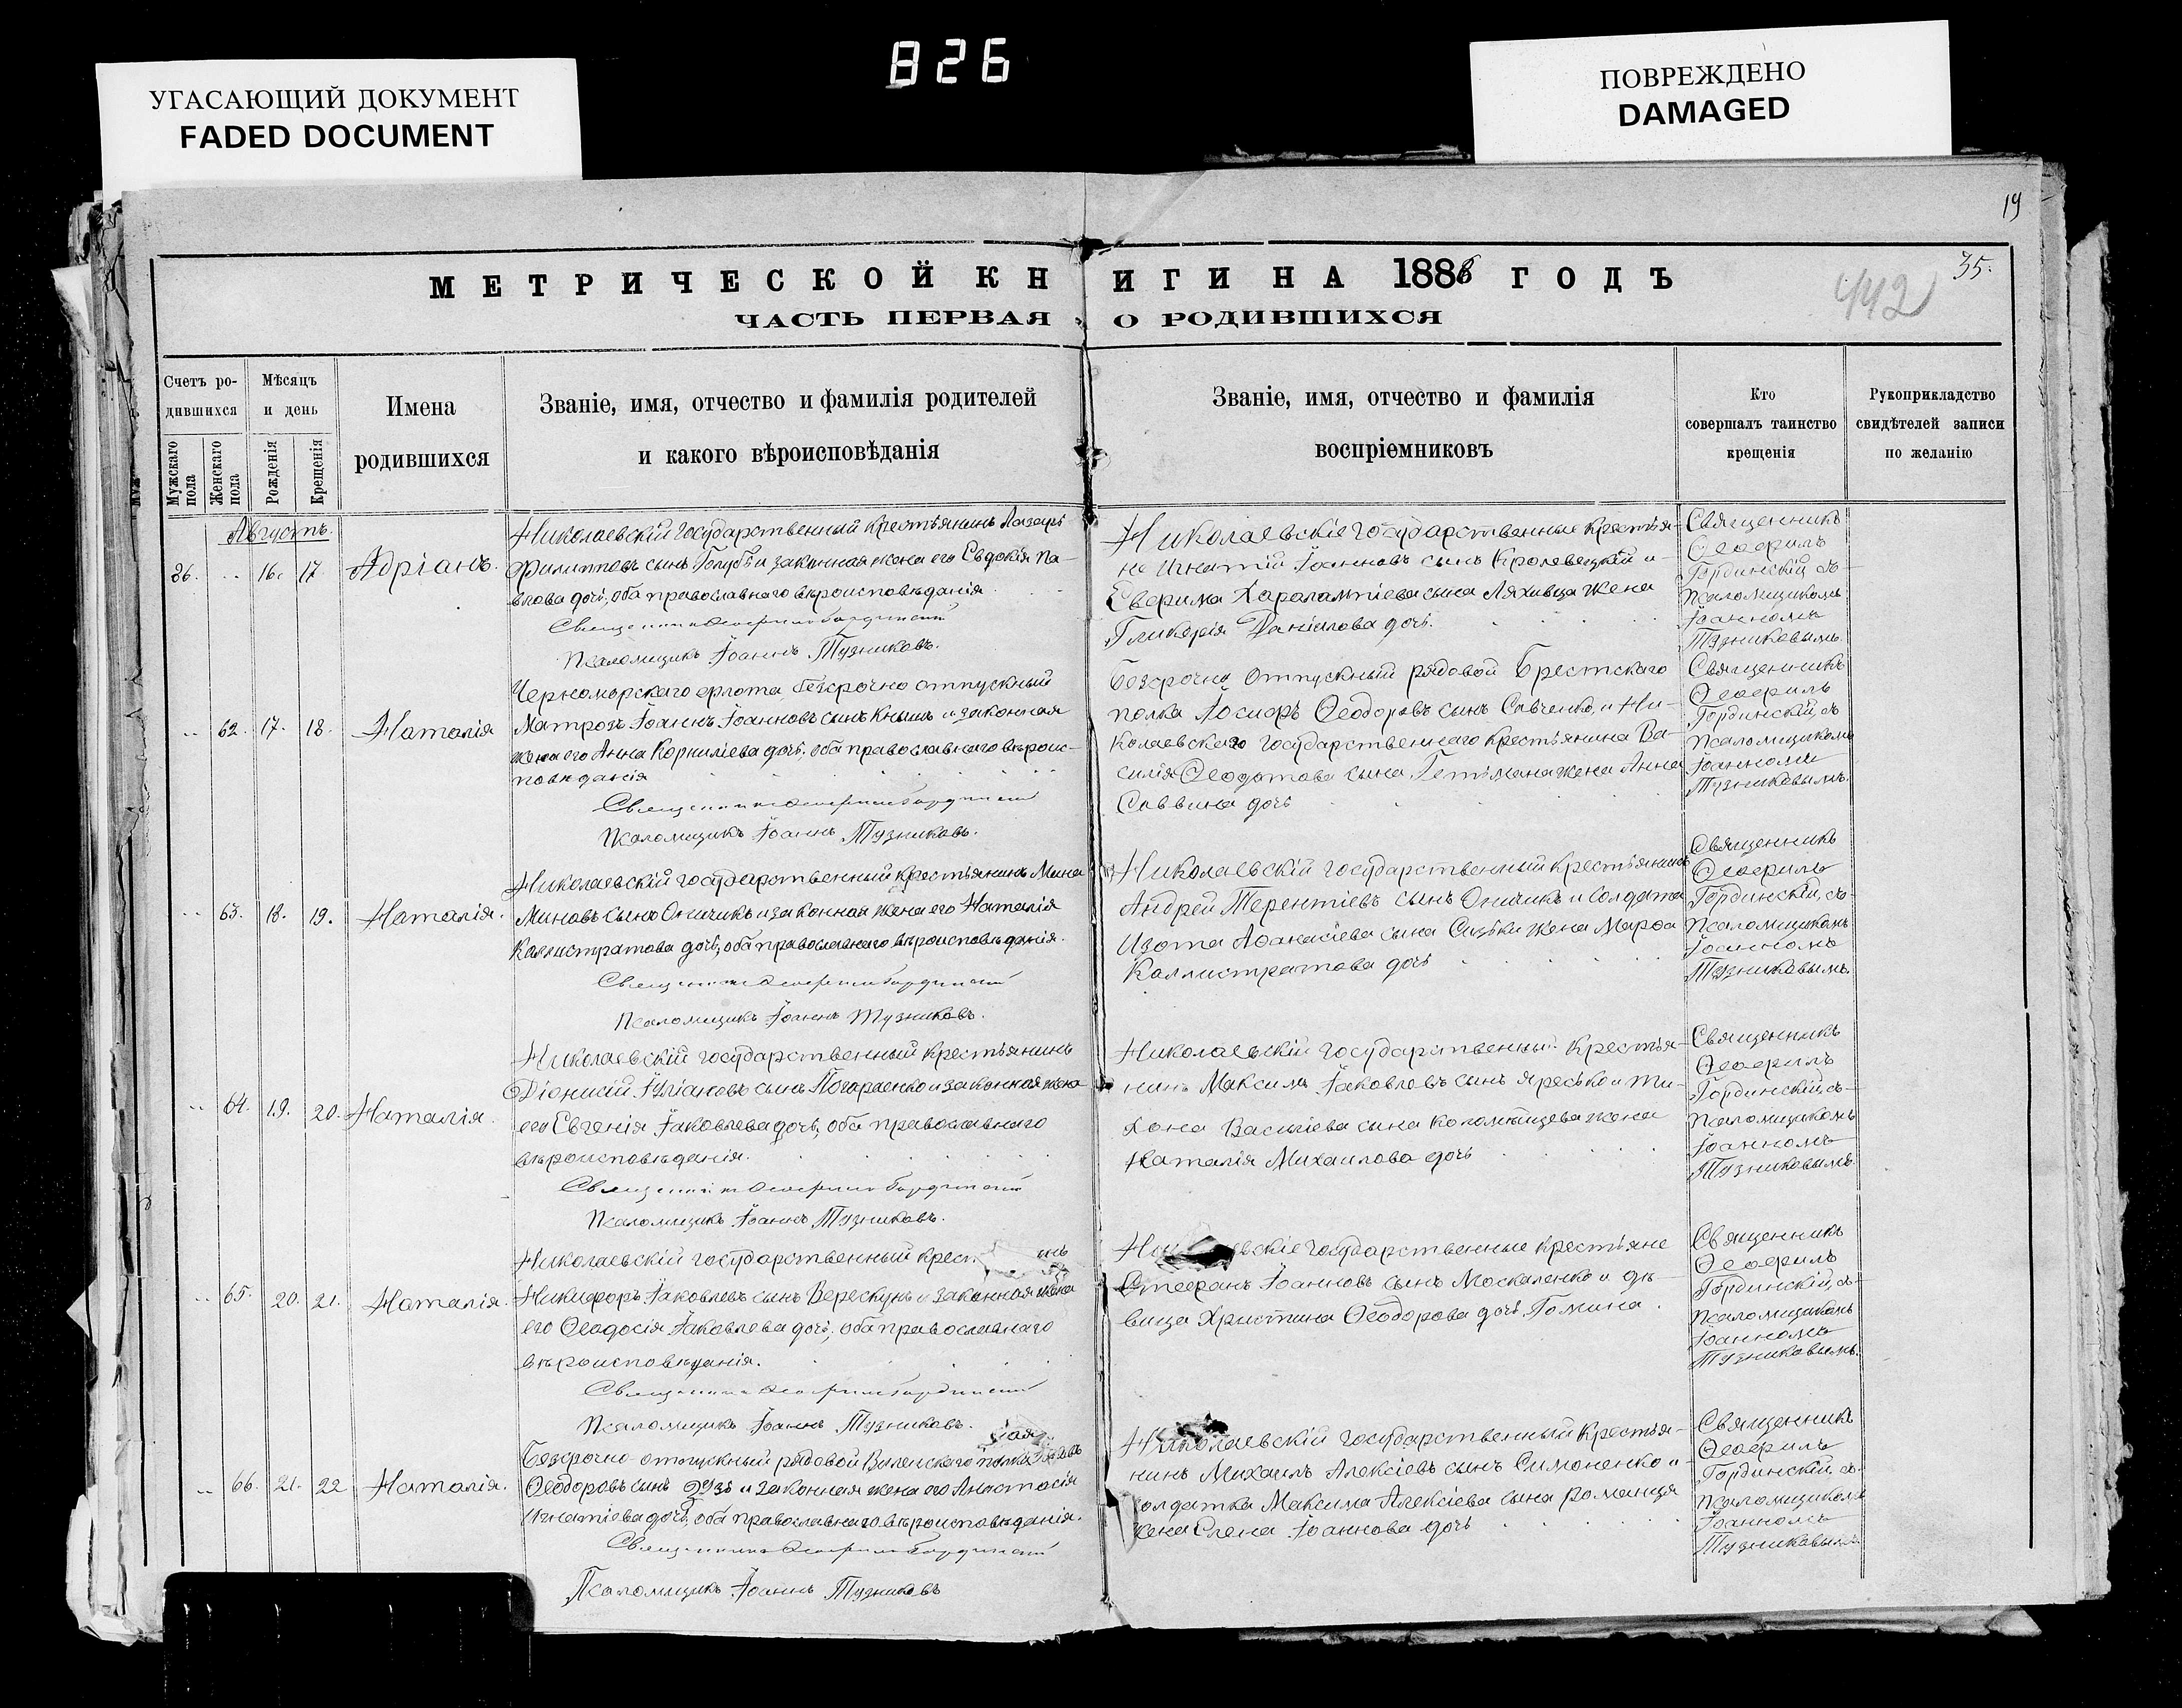 826
УГАСАЮЩИЙ ДОКУМЕНТ
FADED DOCUMENT
ПОВРЕЖДЕНО
DAMAGED
19
35.
442
МЕТРИЧЕСКОЙ КНИГИ НА 1888 ГОДЪ
ЧАСТЬ ПЕРВАЯ О РОДИВШИХСЯ
Счетъ ро-
дившихся
Мужскаго пола
Женскаго пола
Мѣсяцъ
и день
Рожденія
Крещенія
Имена
родившихся
Званіе, имя, отчество и фамилія родителей
и какого вѣроисповѣданія
Званіе, имя, отчество и фамилія
воспріемниковъ
Кто
совершалъ таинство
крещенія
Рукоприкладство
свидѣтелей записи
по желанію
Августъ.
86. .. 16. 17. Адріанъ.
Николаевскій государственный крестьянинъ Лазарь
Филипповъ сынъ Голубъ и законная жена его Евдокія Па-
влова дочь, оба православнаго вѣроисповѣданія.
Священникъ Ѳеофилъ Гординскій
Псаломщикъ Іоаннъ Тузниковъ.
Николаевскіе государственные крестья-
не Игнатій Іоанновъ сынъ Кролевецкій и
Харалампіева сына Ляховца жена
Гликерія Даніилова дочь.
Священникъ
Ѳеофилъ
Гординскій съ
Псаломщикомъ
Іоанномъ
Тузниковымъ.
.. 62. 17. 18. Наталія
Черноморскаго флота безсрочно отпускный
Матрозъ Іоаннъ Іоанновъ сынъ Кнышъ и законная
жена его Анна Корниліева дочь, оба православнаго вѣроис-
повѣданія
Священникъ Ѳеофилъ Гординскій
Псаломщикъ Іоаннъ Тузниковъ.
Безсрочно отпускный рядовой Брестскаго
полка Іосифъ Ѳеодоровъ сынъ Савченко, и Ни-
колаевскаго государственнаго крестьянина Ва-
силія Ѳеодотова сына Гетьмана жена Анна
Саввина дочь
Священникъ
Ѳеофилъ
Гординскій, съ
Псаломщикомъ
Іоанномъ
Тузниковымъ.
.. 63. 18. 19. Наталія.
Николаевскій государственный крестьянинъ Мина
Миновъ сынъ Оничикъ и законная жена его Наталія
Каллистратова дочь, оба православнаго вѣроисповѣданія.
Священникъ Ѳеофилъ Гординскій
Псаломщикъ Іоаннъ Тузниковъ.
Николаевскій государственный крестьянинъ
Андрей Терентіевъ сынъ Оничикъ и солдата
Изота Аѳанасіева сына жена Марѳа
Каллистратова дочь
Священникъ
Ѳеофилъ
Гординскій, съ
Псаломщикомъ
Іоанномъ
Тузниковымъ.
.. 64. 19. 20. Наталія.
Николаевскій государственный крестьянинъ
Діонисій Іуліановъ сынъ и законная жена
его Евгенія Іаковлева дочь, оба православнаго
вѣроисповѣданія.
Священникъ Ѳеофилъ Гординскій
Псаломщикъ Іоаннъ Тузниковъ.
Николаевскій государственный крестья-
нинъ Максимъ Іаковлевъ сынъ Яресько и Ти-
хона Василіева сына Коломѣйцева жена
Наталія Михаилова дочь
Священникъ
Ѳеофилъ
Гординскій, съ
Псаломщикомъ
Іоанномъ
Тузниковымъ.
.. 65. 20. 21. Наталія.
Николаевскій государственный крест
Никифоръ Іаковлевъ сынъ Верескунъ и законная жена
его Ѳеодосія Іаковлева дочь, оба православнаго
вѣроисповѣданія.
Священникъ Ѳеофилъ Гординскій
Псаломщикъ Іоаннъ Тузниковъ.
государственные крестьяне
Стефанъ Іоанновъ сынъ Москаленко и дѣ-
вица Христина Ѳеодорова дочь Гомина.
Священникъ
Ѳеофилъ
Гординскій, съ
Псаломщикомъ
Іоанномъ
Тузниковымъ.
.. 66. 21. 22 Наталія.
Безсрочно-отпускный рядовой Виленскаго полка
Ѳеодоровъ сынъ и законная жена его Анастасія
Игнатіева дочь, оба православнаго вѣроисповѣданія.
Священникъ Ѳеофилъ Гординскій
Псаломщикъ Іоаннъ Тузниковъ
Николаевскій государственный крестья-
нинъ Михаилъ Алексіевъ сынъ Симоненко и
солдатка Максима Алексіева сына Романця
жена Елена Іоаннова дочь
Священникъ
Ѳеофилъ
Гординскій, съ
Псаломщикомъ
Іоанномъ
Тузниковымъ.